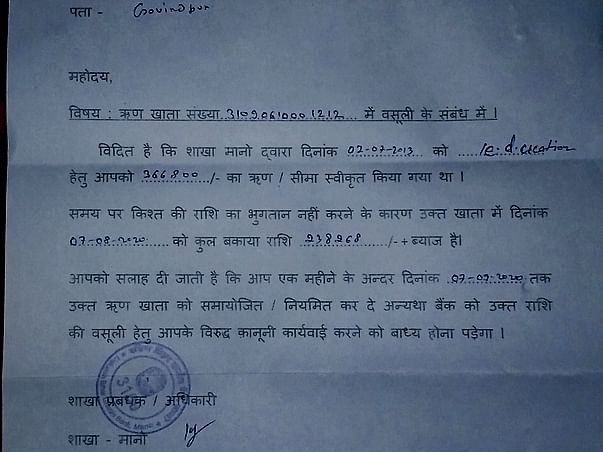 पता - Govindpur
महोदय,
विषय : ऋण खाता संख्या 31090610001212 में वसूली के संबंध में ।
विदित है कि शाखा मानो द्वारा दिनांक 02-07-2013 को
हेतु आपको 366800/- का ऋण / सीमा स्वीकृत किया गया था ।
समय पर किश्त की राशि का भुगतान नहीं करने के कारण उक्त खाता में दिनांक
07-08-2020 को कुल बकाया राशि 238968 /-+ब्याज है।
आपको सलाह दी जाती है कि आप एक महीने के अन्दर दिनांक 07-09-2020 तक
उक्त ऋण खाता को समायोजित / नियमित कर दे अन्यथा बैंक को उक्त राशि
की वसूली हेतु आपके विरुद्ध क़ानूनी कार्यवाई करने को बाध्य होना पड़ेगा ।
शाखा प्रबंधक / अधिकारी
शाखा - मानो